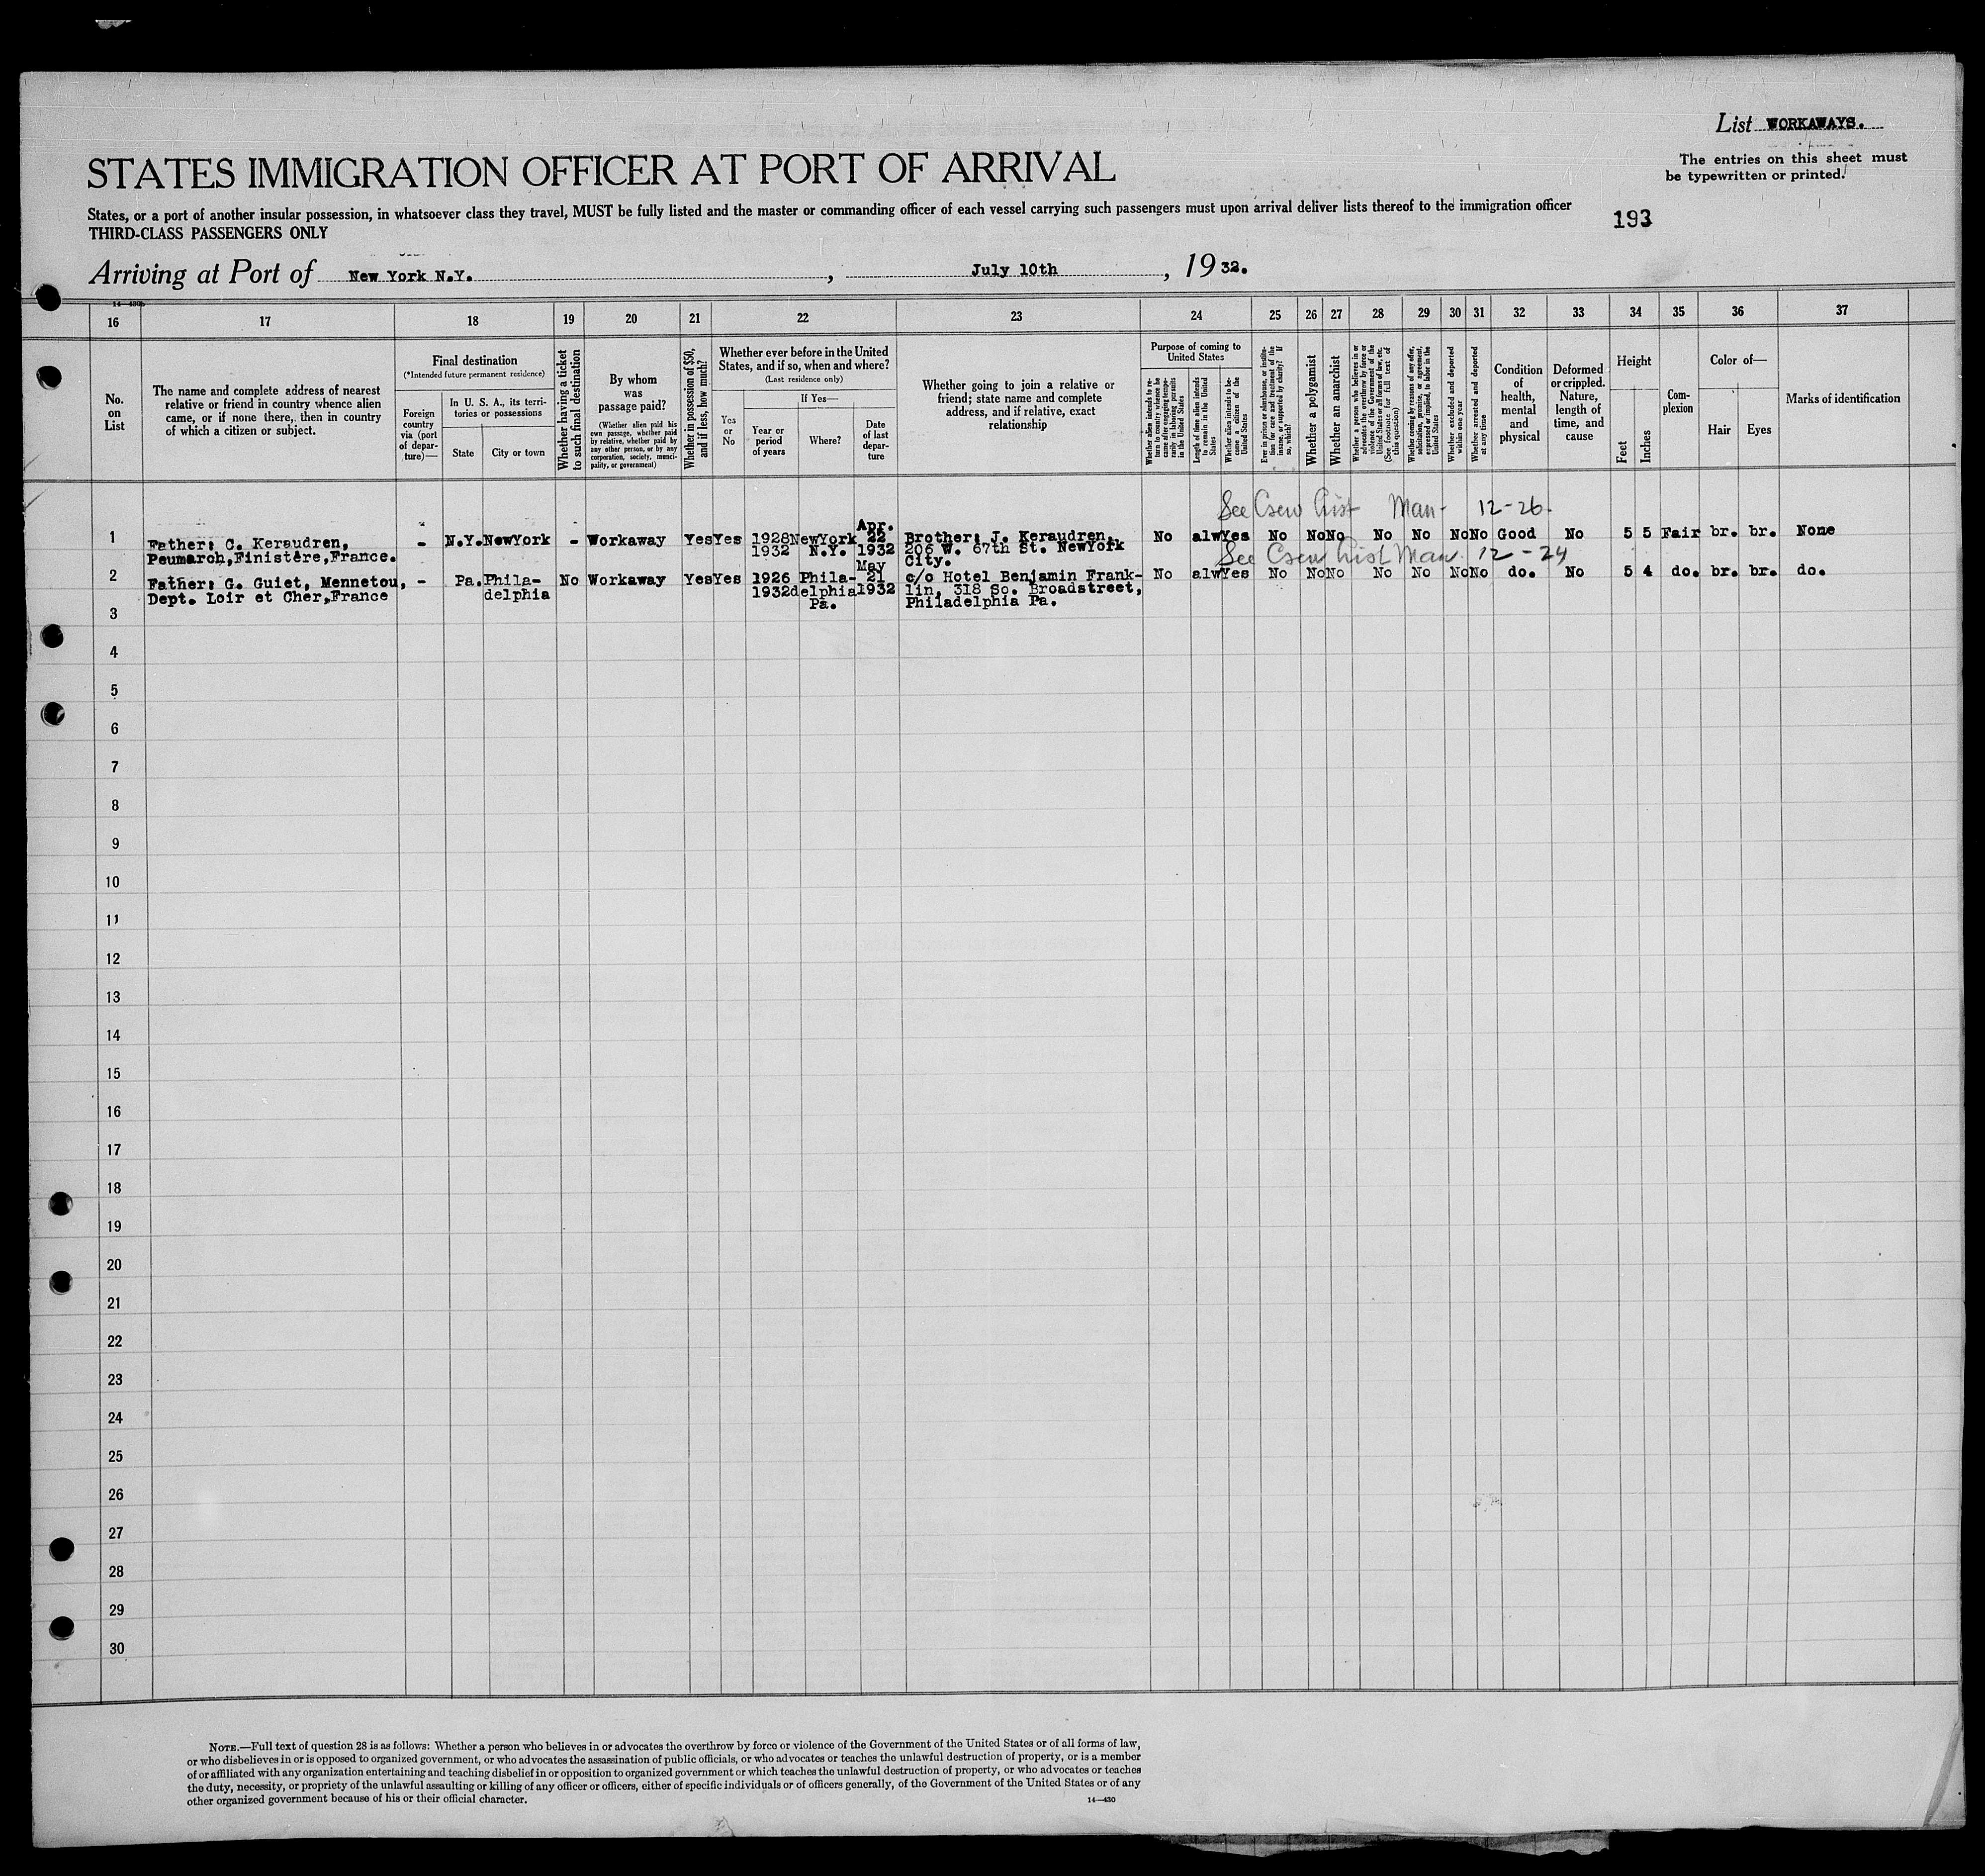 List WORKAWAYS.
The entries on this sheet must
be typewritten or printed.
STATES IMMIGRATION OFFICER AT PORT OF ARRIVAL
States, or a port of another insular possession, in whatsoever class they travel, MUST be fully listed and the master or commanding officer of each vessel carrying such passengers must upon arrival deliver lists thereof to the immigration officer
THIRD-CLASS PASSENGERS ONLY
193
Arriving at Port of New York N.Y., July 10th, 1932.
16 17 18 19 20 21 22 23 24 25 26 27 28 29 30 31 32 33 34 35 36 37
No.
on
List
The name and complete address of nearest
relative or friend in country whence alien
came, or if none there, then in country
of which a citizen or subject.
Final destination
(*Intended future permanent residence)
Foreign
country
via (port
of depar-
ture)—
In U. S. A., its terri-
tories or possessions
State
City or town
Whether having a ticket
to such final destination
By whom
was
passage paid?
(Whether alien paid his
own passage, whether paid
by relative, whether paid by
any other person, or by any
corporation, society, munici-
pality, or government)
Whether in possession of $50,
and if less, how much?
Whether ever before in the United
States, and if so, when and where?
(Last residence only)
Yes
or
No
If Yes—
Year or
period
of years
Where?
Date
of last
depar-
ture
Whether going to join a relative or
friend; state name and complete
address, and if relative, exact
relationship
Purpose of coming to
United States
Whether alien intends to re-
turn to country whence he
came after engaging tempo-
rarily in laboring pursuits
in the United States
Length of time alien intends
to remain in the United
States
Whether alien intends to be-
come a citizen of the
United States
Ever in prison or almshouse, or institu-
tion for care and treatment of the
insane, or supported by charity? If
so, which?
Whether a polygamist
Whether an anarchist
Whether a person who believes in or
advocates the overthrow by force or
violence of the Government of the
United States or all forms of law, etc.
(See footnote for full text of
this question)
Whether coming by reasons of any offer,
solicitation, promise, or agreement,
expressed or implied, to labor in the
United States
Whether excluded and deported
within one year
Whether arrested and deported
at any time
Condition
of
health,
mental
and
physical
Deformed
or crippled.
Nature,
length of
time, and
cause
Height
Feet
Inches
Com-
plexion
Color of—
Hair
Eyes
Marks of identification
See Crew List Man- 12-26-
1 Father: C. Keraudren,
Penmarch,Finistère,France.
- N.Y. NewYork - Workaway Yes Yes
1928
1932
NewYork
N.Y.
Apr.
22
1932
Brother: J. Keraudren,
206 W. 67th St. NewYork
City.
No alw Yes No No No No No No No Good No 5 5 Fair br. br. None
See Crew List Man. 12-24
2 Father: G. Guiet, Mennetou,
Dept. Loir et Cher,France
- Pa. Phila-
delphia
No Workaway Yes Yes
1926
1932
Phila-
delphia
Pa.
May
21
1932
c/o Hotel Benjamin Frank-
lin, 318 So. Broadstreet,
Philadelphia Pa.
No alw Yes No No No No No No No do. No 5 4 do. br. br. do.
3
4
5
6
7
8
9
10
11
12
13
14
15
16
17
18
19
20
21
22
23
24
25
26
27
28
29
30
NOTE.—Full text of question 28 is as follows: Whether a person who believes in or advocates the overthrow by force or violence of the Government of the United States or of all forms of law,
or who disbelieves in or is opposed to organized government, or who advocates the assassination of public officials, or who advocates or teaches the unlawful destruction of property, or is a member
of or affiliated with any organization entertaining and teaching disbelief in or opposition to organized government or which teaches the unlawful destruction of property, or who advocates or teaches
the duty, necessity, or propriety of the unlawful assaulting or killing of any officer or officers, either of specific individuals or of officers generally, of the Government of the United States or of any
other organized government because of his or their official character.
14—430